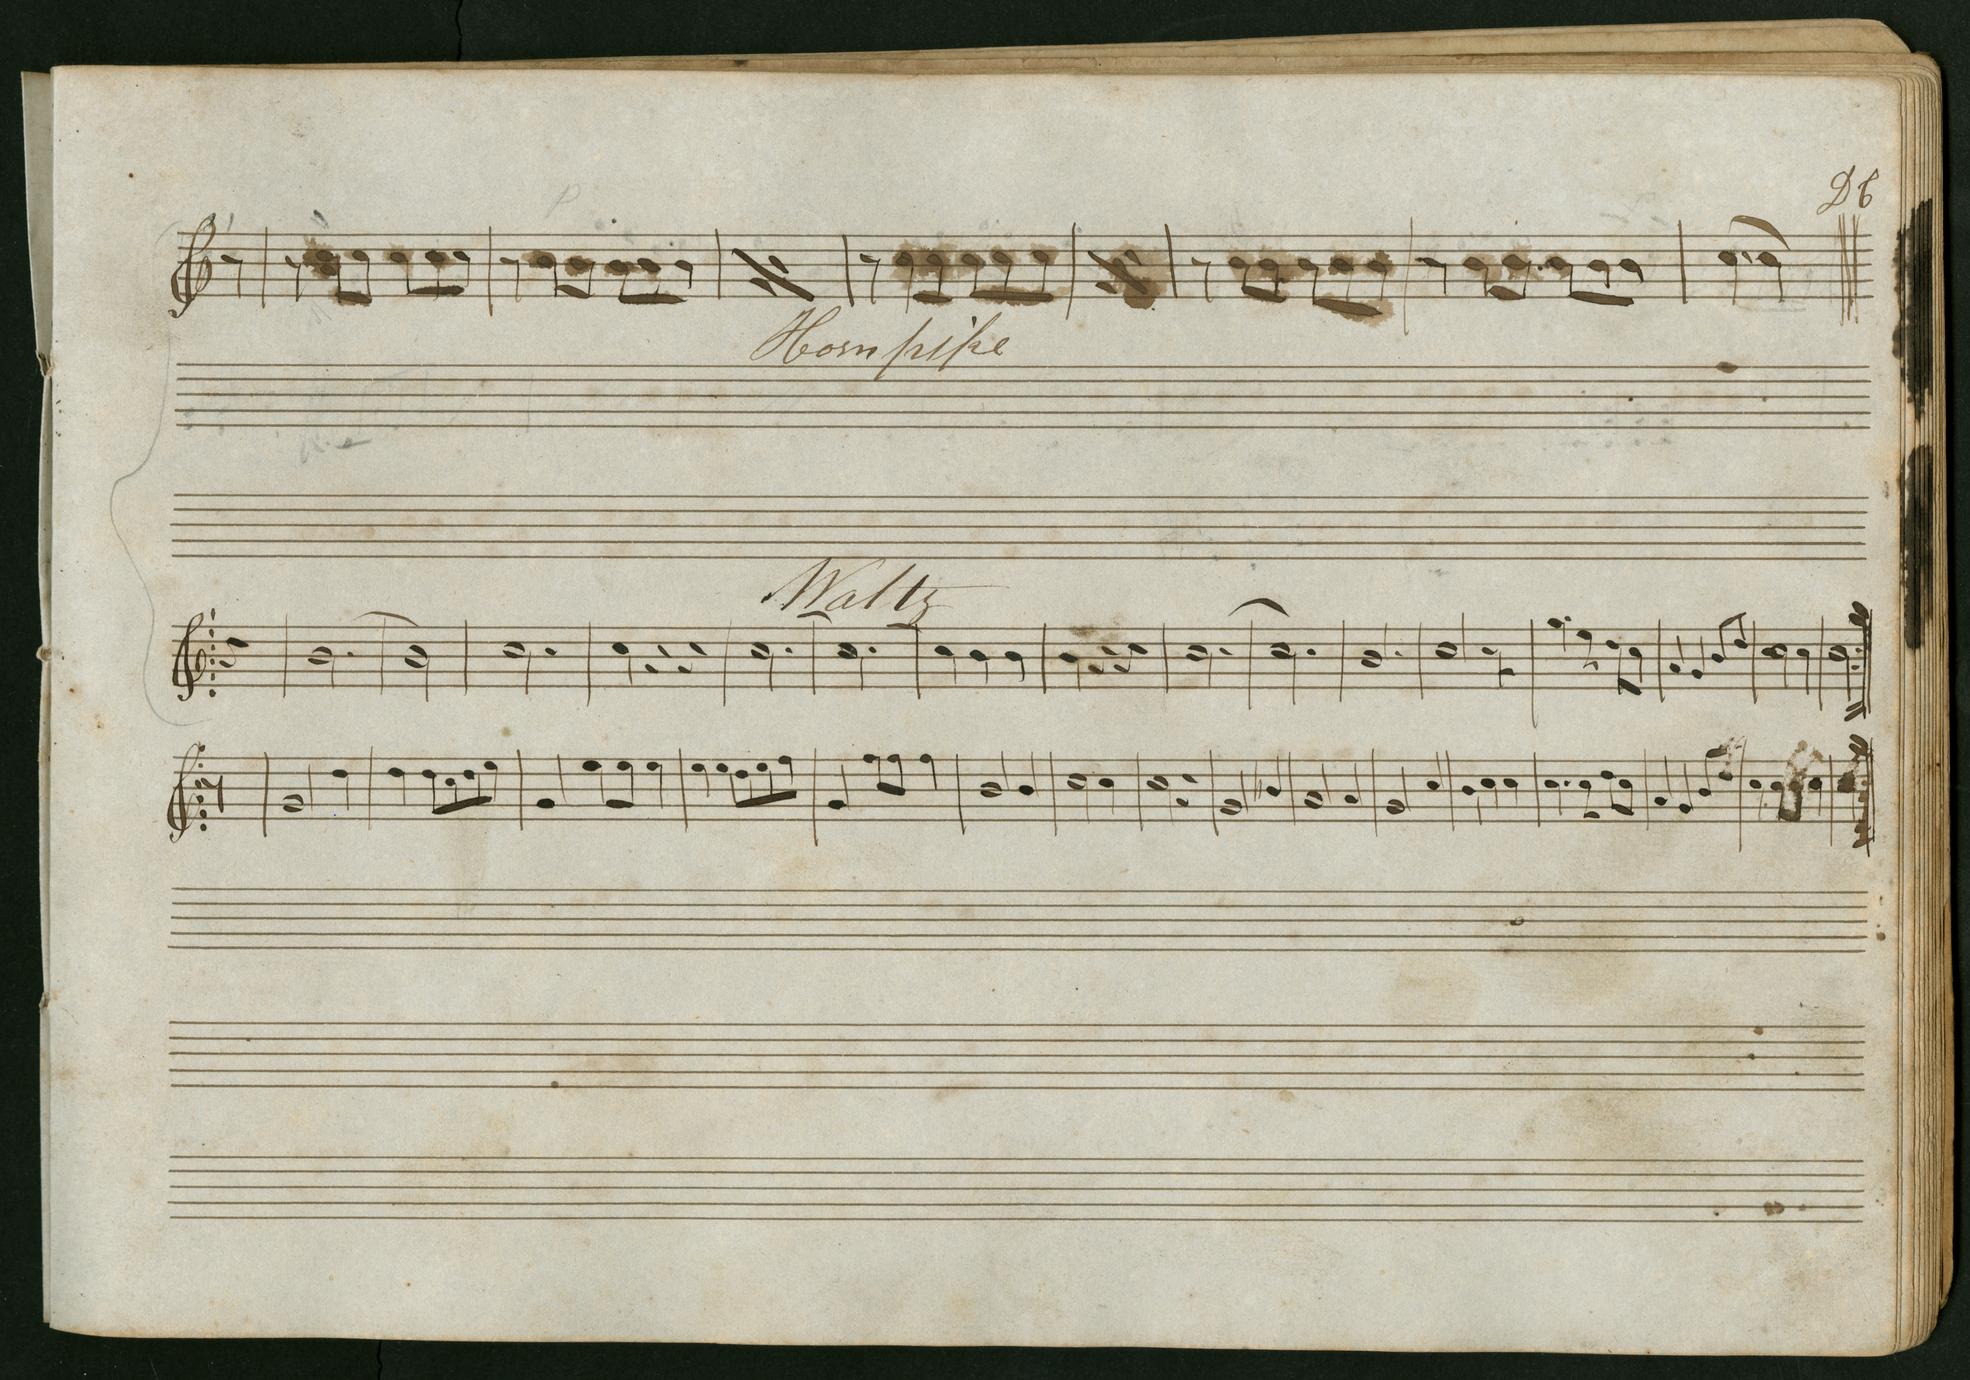 D C
Hornpipe
Waltz